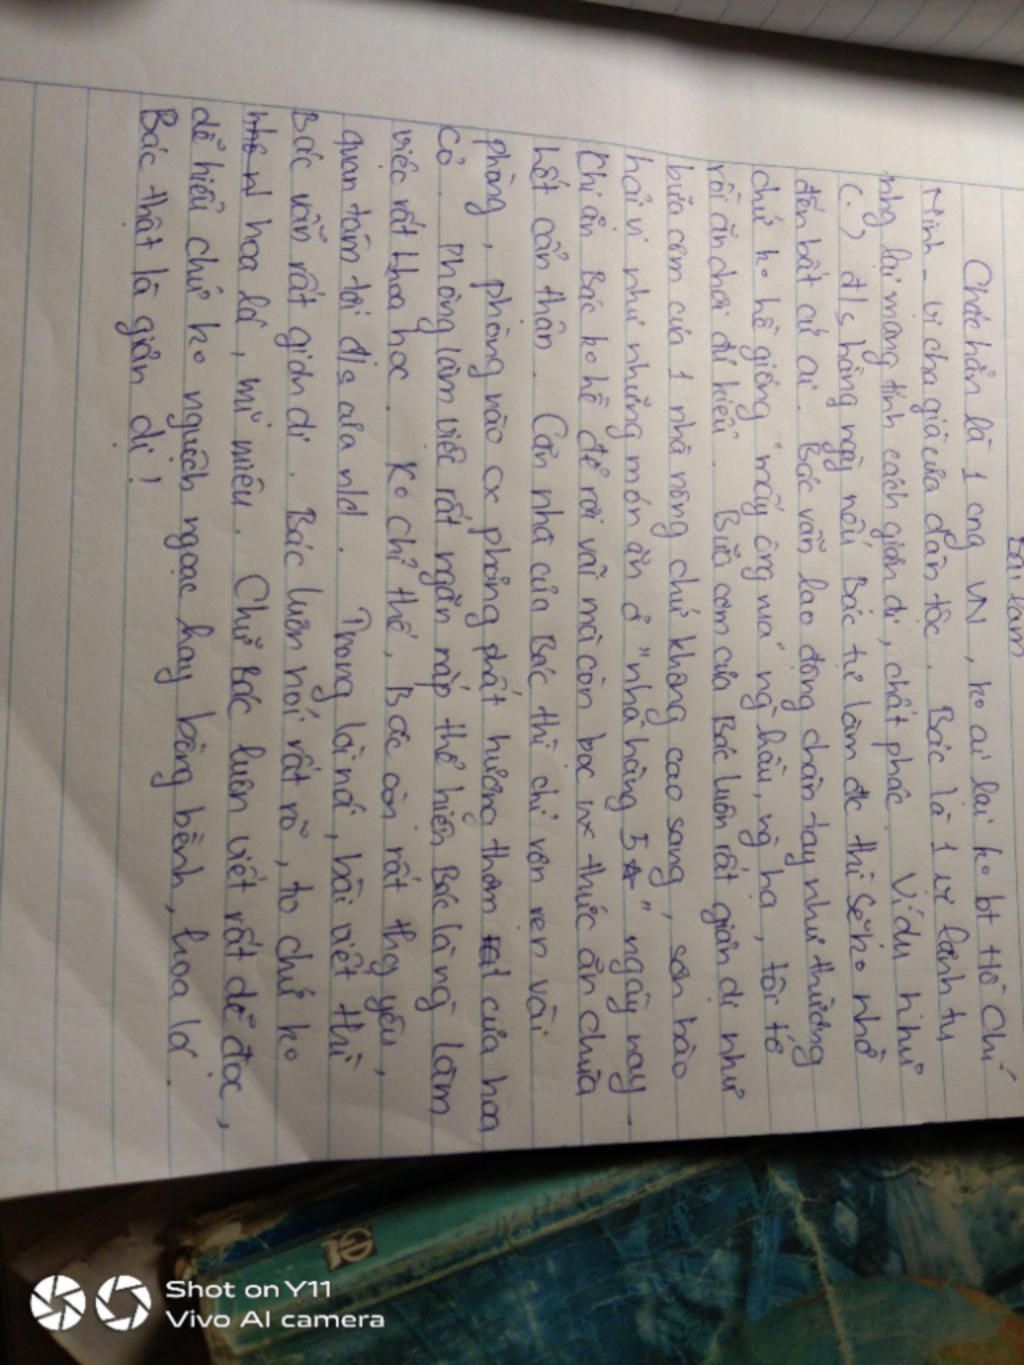 Bài làm
Chắc hẳn là 1 cng VN, ko ai lại ko bt Hồ Chí
Minh - vị cha già của dân tộc. Bác là 1 vị lãnh tụ
nhg lại mang tính cách giản dị, chất phác. Ví dụ như
(.) đ/s hằng ngày nếu Bác tự làm đc thì sẽ ko nhờ
đến bất cứ ai. Bác vẫn lao động chân tay như thường
chứ ko hề giống "mấy ông nwá" ng hầu, ng hạ, tôi tớ
rồi ăn chơi đủ kiểu. Bữa cơm của Bác luôn rất giản dị như
bữa cơm của 1 nhà nông chứ không cao sang, sơn hào
hải vị như những món ăn ở "nhà hàng 5☆" ngày nay.
Khi ăn Bác ko hề để rơi vãi mà còn bọc nx thức ăn chưa
hết cẩn thận. Căn nhà của Bác thì chỉ vỏn vẹn vài
phòng, phòng nào cx phảng phất hương thơm của hoa
cỏ. Phòng làm việc rất ngăn nắp thể hiện Bác là ng làm
việc rất khoa học. Ko chỉ thế, Bác còn rất thg yêu,
quan tâm tới đ/s của nld. Trong lời nói, bài viết thì
Bác vẫn rất giản dị. Bác luôn nói rất rõ, to chứ ko
hoa lá, mĩ miều. Chữ Bác luôn viết rất dễ đọc,
dễ hiểu chứ ko nguệch ngoạc hay bồng bềnh, hoa lá.
Bác thật là giản dị!
Shot on Y11
Vivo AI camera